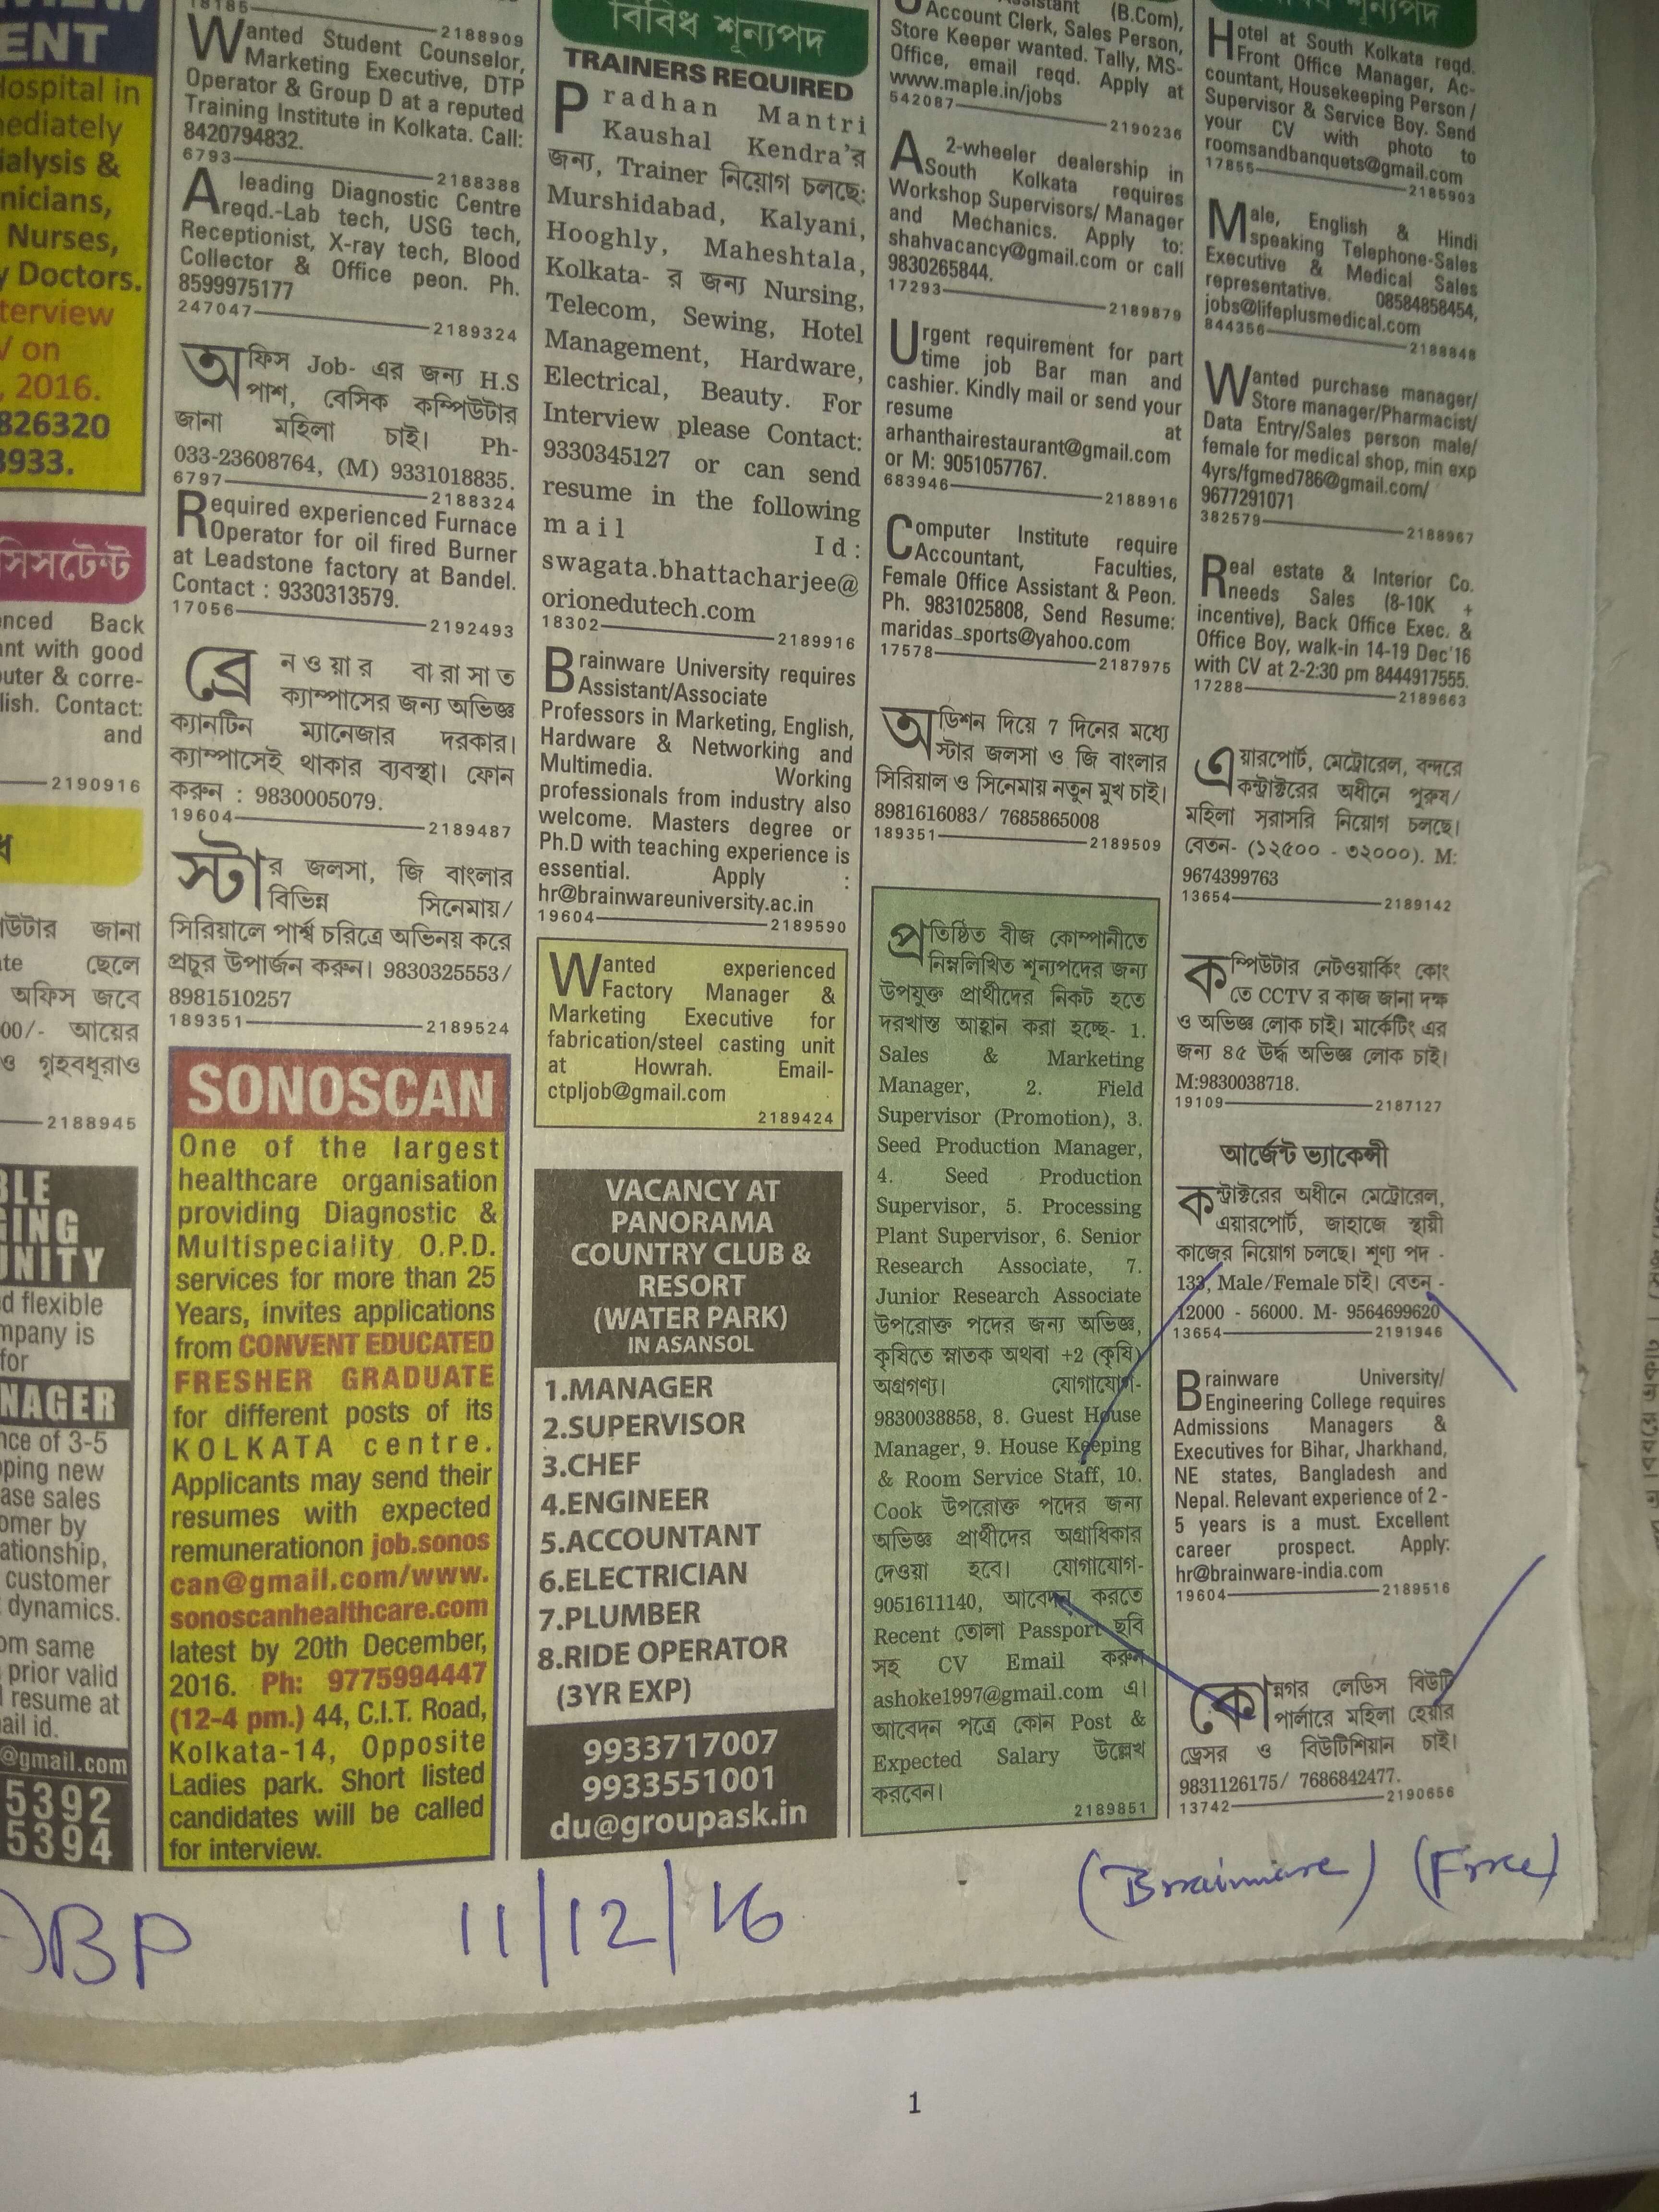 ENT
Hospital in
nediately
ialysis &
nicians,
Nurses,
y Doctors.
terview
V on
, 2016.
826320
3933.
সিসটেন্ট
enced Back
ant with good
puter & corre-
lish. Contact:
and
2190916
উটার জানা
ate ছেলে
অফিস জবে
00/- আয়ের
ও গৃহবধূরাও
2188945
BLE
GING
UNITY
d flexible
mpany is
for
NAGER
nce of 3-5
ping new
ase sales
omer by
ationship,
customer
dynamics.
om same
prior valid
resume at
ail id.
@gmail.com
5392
5394
18185 2188909
Wanted Student Counselor,
Marketing Executive, DTP
Operator & Group D at a reputed
Training Institute in Kolkata. Call:
8420794832.
6793 2188388
A leading Diagnostic Centre
reqd.-Lab tech, USG tech,
Receptionist, X-ray tech, Blood
Collector & Office peon. Ph.
8599975177
247047 2189324
অফিস Job- এর জন্য H.S
পাশ, বেসিক কম্পিউটার
জানা মহিলা চাই। Ph-
033-23608764, (M) 9331018835.
6797 2188324
Required experienced Furnace
Operator for oil fired Burner
at Leadstone factory at Bandel.
Contact : 9330313579.
17056 2192493
ব্রেনওয়ার বারাসাত
ক্যাম্পাসের জন্য অভিজ্ঞ
ক্যানটিন ম্যানেজার দরকার।
ক্যাম্পাসেই থাকার ব্যবস্থা। ফোন
করুন : 9830005079.
19604 2189487
স্টার জলসা, জি বাংলার
বিভিন্ন সিনেমায়/
সিরিয়ালে পার্শ্ব চরিত্রে অভিনয় করে
প্রচুর উপার্জন করুন। 9830325553/
8981510257
189351 2189524
SONOSCAN
One of the largest
healthcare organisation
providing Diagnostic &
Multispeciality O.P.D.
services for more than 25
Years, invites applications
from CONVENT EDUCATED
FRESHER GRADUATE
for different posts of its
KOLKATA centre.
Applicants may send their
resumes with expected
remunerationon job.sonos
can@gmail.com/www.
sonoscanhealthcare.com
latest by 20th December,
2016. Ph: 9775994447
(12-4 pm.) 44, C.I.T. Road,
Kolkata-14, Opposite
Ladies park. Short listed
candidates will be called
for interview.
বিবিধ শূন্যপদ
TRAINERS REQUIRED
Pradhan Mantri
Kaushal Kendra'র
জন্য, Trainer নিয়োগ চলছে:
Murshidabad, Kalyani,
Hooghly, Maheshtala,
Kolkata- র জন্য Nursing,
Telecom, Sewing, Hotel
Management, Hardware,
Electrical, Beauty. For
Interview please Contact:
9330345127 or can send
resume in the following
mail Id:
swagata.bhattacharjee@
orionedutech.com
18302 2189916
Brainware University requires
Assistant/Associate
Professors in Marketing, English,
Hardware & Networking and
Multimedia. Working
professionals from industry also
welcome. Masters degree or
Ph.D with teaching experience is
essential. Apply :
hr@brainwareuniversity.ac.in
19604 2189590
Wanted experienced
Factory Manager &
Marketing Executive for
fabrication/steel casting unit
at Howrah. Email-
ctpljob@gmail.com
2189424
VACANCY AT
PANORAMA
COUNTRY CLUB &
RESORT
(WATER PARK)
IN ASANSOL
1.MANAGER
2.SUPERVISOR
3.CHEF
4.ENGINEER
5.ACCOUNTANT
6.ELECTRICIAN
7.PLUMBER
8.RIDE OPERATOR
(3YR EXP)
9933717007
9933551001
du@groupask.in
(B.Com),
Account Clerk, Sales Person,
Store Keeper wanted. Tally, MS-
Office, email reqd. Apply at
www.maple.in/jobs
542087 2190236
A 2-wheeler dealership in
South Kolkata requires
Workshop Supervisors/ Manager
and Mechanics. Apply to:
shahvacancy@gmail.com or call
9830265844.
17293 2189879
Urgent requirement for part
time job Bar man and
cashier. Kindly mail or send your
resume at
arhanthairestaurant@gmail.com
or M: 9051057767.
683946 2188916
Computer Institute require
Accountant, Faculties,
Female Office Assistant & Peon.
Ph. 9831025808, Send Resume:
maridas_sports@yahoo.com
17578 2187975
অডিশন দিয়ে 7 দিনের মধ্যে
স্টার জলসা ও জি বাংলার
সিরিয়াল ও সিনেমায় নতুন মুখ চাই।
8981616083/ 7685865008
189351 2189509
প্রতিষ্ঠিত বীজ কোম্পানীতে
নিম্নলিখিত শূন্যপদের জন্য
উপযুক্ত প্রার্থীদের নিকট হতে
দরখাস্ত আহ্বান করা হচ্ছে- 1.
Sales & Marketing
Manager, 2. Field
Supervisor (Promotion), 3.
Seed Production Manager,
4. Seed Production
Supervisor, 5. Processing
Plant Supervisor, 6. Senior
Research Associate, 7.
Junior Research Associate
উপরোক্ত পদের জন্য অভিজ্ঞ,
কৃষিতে স্নাতক অথবা +2 (কৃষি)
অগ্রগণ্য। যোগাযোগ-
9830038858, 8. Guest House
Manager, 9. House Keeping
& Room Service Staff, 10.
Cook উপরোক্ত পদের জন্য
অভিজ্ঞ প্রার্থীদের অগ্রাধিকার
দেওয়া হবে। যোগাযোগ-
9051611140, আবেদন করতে
Recent তোলা Passport ছবি
সহ CV Email করুন
ashoke1997@gmail.com এ।
আবেদন পত্রে কোন Post &
Expected Salary উল্লেখ
করবেন।
2189851
শূন্যপদ
Hotel at South Kolkata reqd.
Front Office Manager, Ac-
countant, Housekeeping Person /
Supervisor & Service Boy. Send
your CV with photo to
roomsandbanquets@gmail.com
17855 2185903
Male, English & Hindi
speaking Telephone-Sales
Executive & Medical Sales
representative. 08584858454,
jobs@lifeplusmedical.com
844356 2188848
Wanted purchase manager/
Store manager/Pharmacist/
Data Entry/Sales person male/
female for medical shop, min exp
4yrs/fgmed786@gmail.com/
9677291071
382579 2188967
Real estate & Interior Co.
needs Sales (8-10K +
incentive), Back Office Exec. &
Office Boy, walk-in 14-19 Dec'16
with CV at 2-2:30 pm 8444917555.
17288 2189663
এয়ারপোর্ট, মেট্রোরেল, বন্দরে
কন্ট্রাক্টরের অধীনে পুরুষ/
মহিলা সরাসরি নিয়োগ চলছে।
বেতন- (১২৫০০ - ৩২০০০). M:
9674399763
13654 2189142
কম্পিউটার নেটওয়ার্কিং কোং
তে CCTV র কাজ জানা দক্ষ
ও অভিজ্ঞ লোক চাই। মার্কেটিং এর
জন্য ৪৫ ঊর্দ্ধ অভিজ্ঞ লোক চাই।
M:9830038718.
19109 2187127
আর্জেন্ট ভ্যাকেন্সী
কন্ট্রাক্টরের অধীনে মেট্রোরেল,
এয়ারপোর্ট, জাহাজে স্থায়ী
কাজের নিয়োগ চলছে। শূণ্য পদ -
133, Male/Female চাই। বেতন -
12000 - 56000. M- 9564699620
13654 2191946
Brainware University/
Engineering College requires
Admissions Managers &
Executives for Bihar, Jharkhand,
NE states, Bangladesh and
Nepal. Relevant experience of 2 -
5 years is a must. Excellent
career prospect. Apply:
hr@brainware-india.com
19604 2189516
কোন্নগর লেডিস বিউটি
পার্লারে মহিলা হেয়ার
ড্রেসর ও বিউটিশিয়ান চাই।
9831126175/ 7686842477.
13742 2190656
ABP 11/12/16 (Brainware) (Free)
1